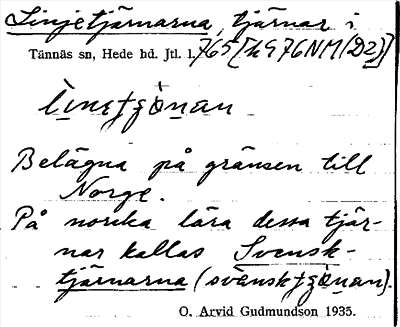 Linjetjärnarna, tjärnar i
Tännäs sn, Hede hd. Jtl. l. 765 [h976NM(D2)]
Belägna på gränsen till
Norge.
På norska lära dessa tjär-
nar kallas Svensk-
tjärnarna
O. Arvid Gudmundson 1935.